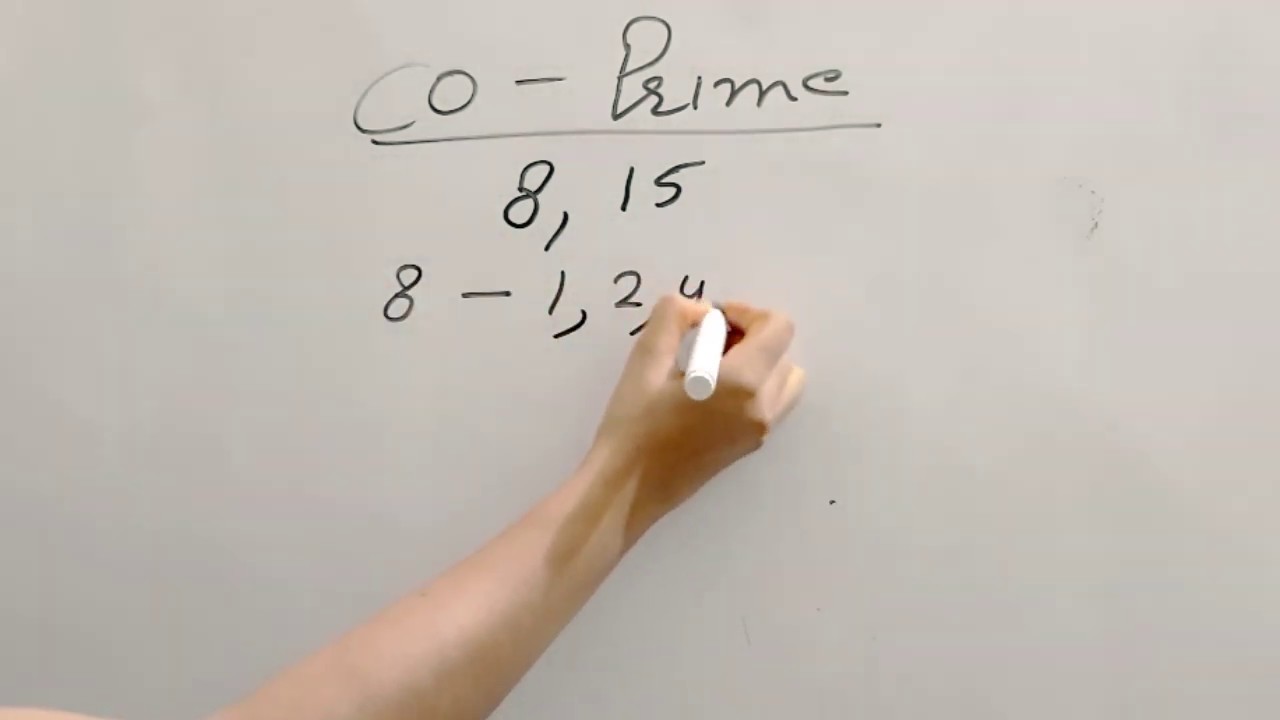 Co - Prime
8, 15
8 - 1, 2, 4